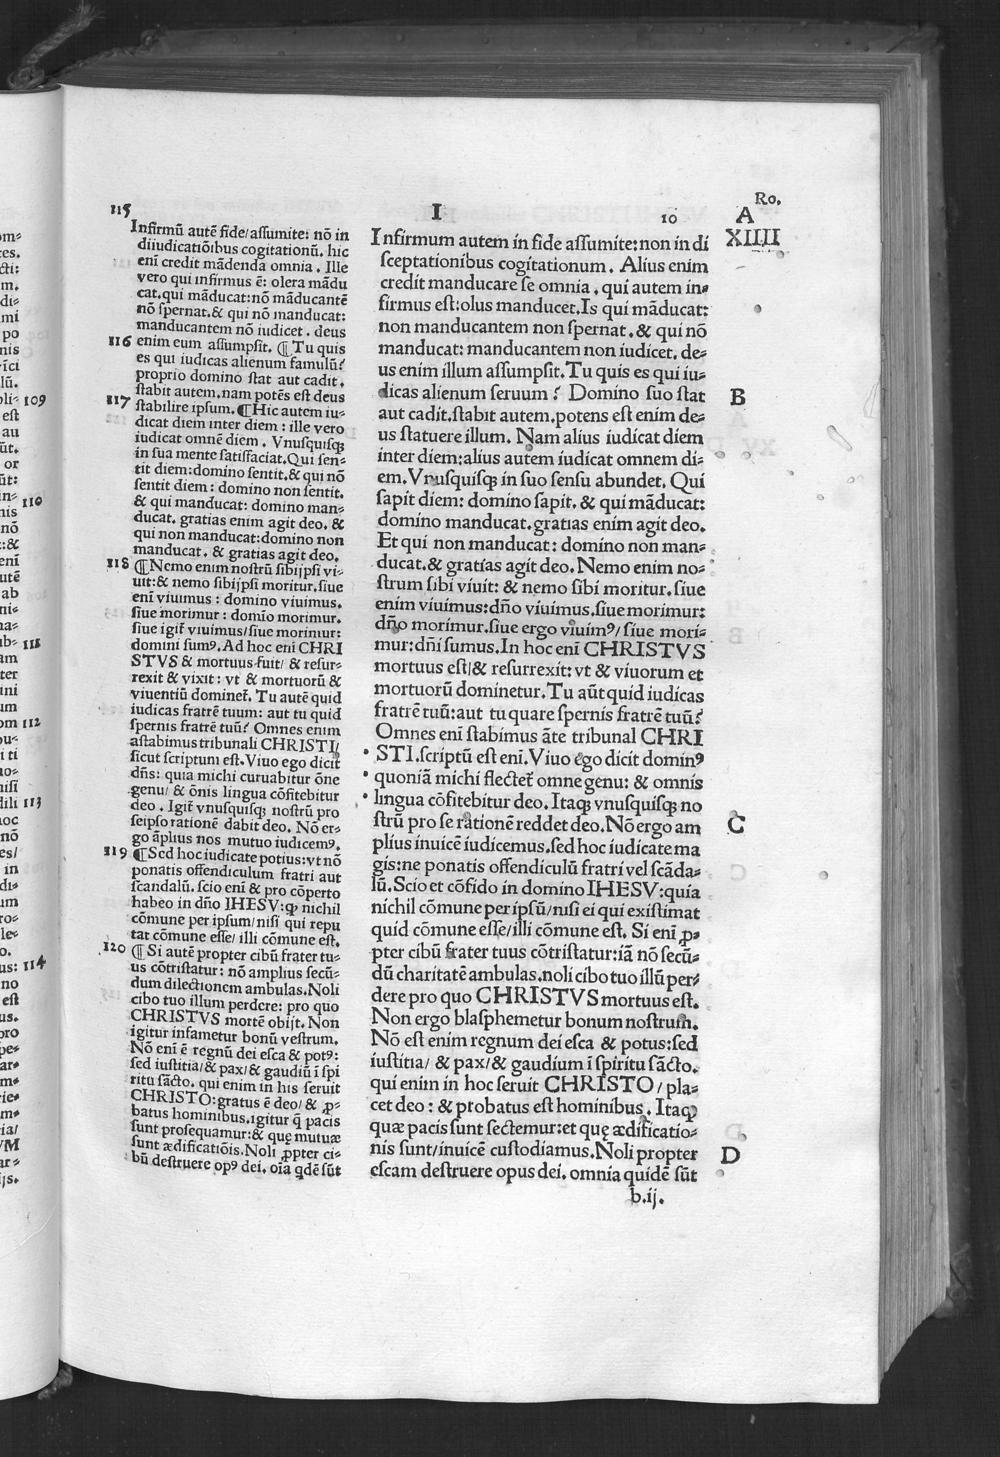 I
10
Ro.
A
XIIII
115
Infirmū autē fide/aſſumite: nō in
diiudicatiōibus cogitationū. hic
eni credit mādenda omnia. Ille
vero qui infirmus ē: olera mādu
cat.qui māducat:nō māducantē
nō ſpernat.& qui nō manducat:
manducantem nō iudicet. deus
116 enim eum aſſumpſit. ¶Tu quis
es qui iudicas alienum famulū?
proprio domino ſtat aut cadit.
ſtabit autem.nam potēs eſt deus
117 ſtabilire ipſum. ¶Hic autem iu⸗
dicat diem inter diem : ille vero
iudicat omnē diem. Vnuſquiſꝗ
in ſua mente ſatiſfaciat.Qui ſen⸗
tit diem:domino ſentit.& qui nō
ſentit diem : domino non ſentit.
& qui manducat: domino man⸗
ducat. gratias enim agit deo. &
qui non manducat:domino non
manducat. & gratias agit deo.
118 ¶Nemo enim noſtrū ſibijpſi vi⸗
uit:& nemo ſibijpſi moritur.ſiue
eni viuimus : domino viuimus.
ſiue morimur : domīo morimur.
ſiue igit̄ viuimus/ſiue morimur:
domini ſumꝰ. Ad hoc eni CHRI
STVS & mortuus fuit/ & reſur⸗
rexit & vixit : vt & mortuorū &
viuentiū dominet̄. Tu autē quid
iudicas fratrē tuum: aut tu quid
ſpernis fratrē tuū? Omnes enim
aſtabimus tribunali CHRISTI/
ſicut ſcriptum eſt. Viuo ego dicit
dn̄s: quia michi curuabitur ōne
genu/ & ōnis lingua cōfitebitur
deo. Igit̄ vnuſquiſꝗ noſtrū pro
ſeipſo rationē dabit deo. Nō er⸗
go āplius nos mutuo iudicemꝰ.
119 ¶Sed hoc iudicate potius:vt nō
ponatis offendiculum fratri aut
ſcandalū. ſcio eni & pro cōperto
habeo in dn̄o IHESV: ꝙ nichil
cōmune per ipſum/ niſi qui repu
tat cōmune eſſe/ illi cōmune eſt.
120 ¶Si autē propter cibū frater tu⸗
us cōtriſtatur: nō amplius ſecū⸗
dum dilectionem ambulas.Noli
cibo tuo illum perdere: pro quo
CHRISTVS mortē obijt. Non
igitur infametur bonū veſtrum.
Nō eni ē regnū dei eſca & potꝰ:
ſed iuſtitia/& pax/& gaudiū ī ſpi
ritu ſācto. qui enim in his ſeruit
CHRISTO: gratus ē deo/ & ꝓ⸗
batus hominibus.igitur q̄ pacis
ſunt proſequamur:& quę mutuæ
ſunt ædificatiōis.Noli ꝓpter ci⸗
bū deſtruere opꝰ dei. oīa qdē ſūt
Infirmum autem in fide aſſumite:non in di
ſceptationibus cogitationum. Alius enim
credit manducare ſe omnia. qui autem in⸗
firmus eſt:olus manducet.Is qui māducat:
non manducantem non ſpernat. & qui nō
manducat: manducantem non iudicet. de⸗
us enim illum aſſumpſit.Tu quis es qui iu⸗
dicas alienum ſeruum? Domino ſuo ſtat B
aut cadit.ſtabit autem.potens eſt enim de⸗
us ſtatuere illum. Nam alius iudicat diem
inter diem:alius autem iudicat omnem di⸗
em. Vnuſquiſꝗ in ſuo ſenſu abundet. Qui
ſapit diem: domino ſapit. & qui māducat:
domino manducat.gratias enim agit deo.
Et qui non manducat: domino non man⸗
ducat.& gratias agit deo. Nemo enim no⸗
ſtrum ſibi viuit: & nemo ſibi moritur. ſiue
enim viuimus:dn̄o viuimus.ſiue morimur:
dn̄o morimur.ſiue ergo viuimꝰ/ ſiue mori⸗
mur:dn̄i ſumus.In hoc eni CHRISTVS
mortuus eſt/& reſurrexit: vt & viuorum et
mortuorū dominetur. Tu aūt quid iudicas
fratrē tuū:aut tu quare ſpernis fratrē tuū?
Omnes eni ſtabimus āte tribunal CHRI
STI.ſcriptū eſt eni.Viuo ego dicit dominꝰ
quoniā michi flectet̄ omne genu: & omnis
lingua cōfitebitur deo. Itaꝗ vnuſquiſꝗ no
ſtrū pro ſe rationē reddet deo.Nō ergo am C
plius inuicē iudicemus.ſed hoc iudicate ma
gis:ne ponatis offendiculū fratri vel ſcāda⸗
lū. Scio et cōfido in domino IHESV: quia
nichil cōmune per ipſū/niſi ei qui exiſtimat
quid cōmune eſſe/illi cōmune eſt. Si eni ꝓ⸗
pter cibū frater tuus cōtriſtatur:iā nō ſecū⸗
dū charitatē ambulas.noli cibo tuo illū per⸗
dere pro quo CHRISTVS mortuus eſt.
Non ergo blaſphemetur bonum noſtrum.
Nō eſt enim regnum dei eſca & potus:ſed
iuſtitia/ & pax/& gaudium ī ſpiritu ſācto.
qui enim in hoc ſeruit CHRISTO/ pla⸗
cet deo : & probatus eſt hominibus. Itaꝗ
quæ pacis ſunt ſectemur:et quę ædificatio⸗
nis ſunt/inuicē cuſtodiamus.Noli propter D
eſcam deſtruere opus dei. omnia quidē ſūt
b.ij.
109
110
111
112
113
114